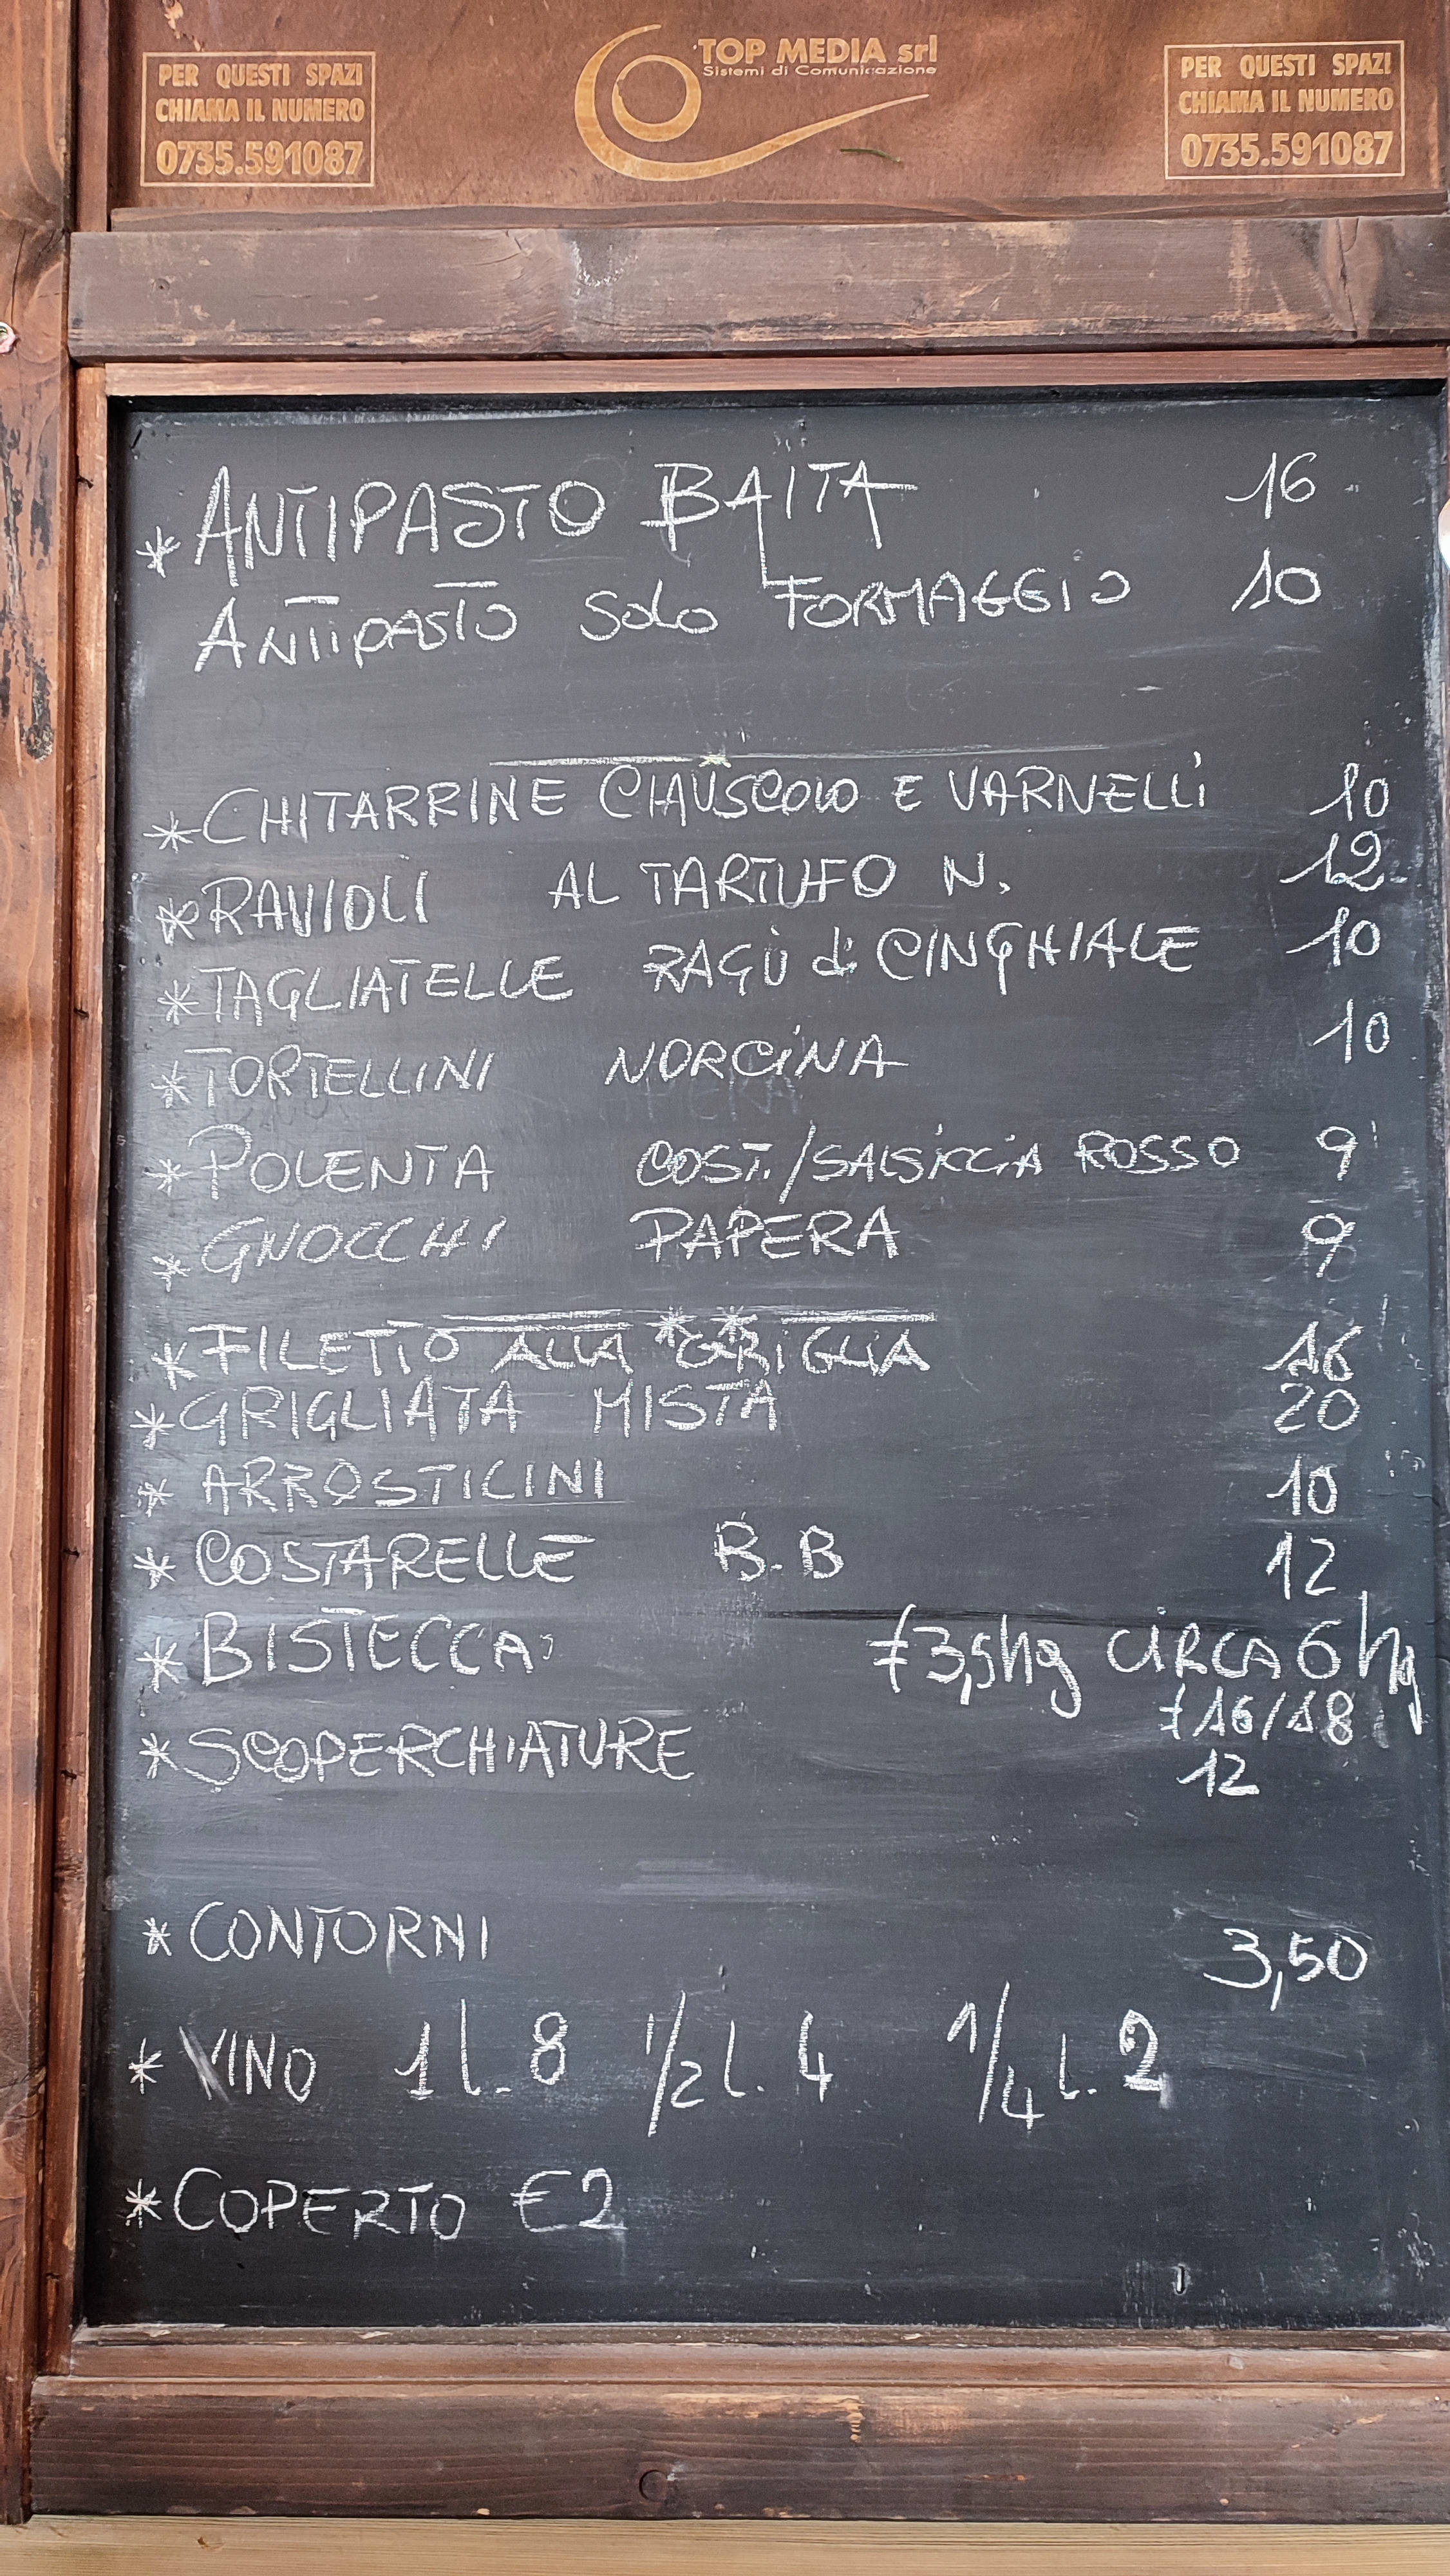 PER QUESTI SPAZI
CHIAMA IL NUMERO
0735.591087
TOP MEDIA srl
Sistemi di Comunicazione
PER QUESTI SPAZI
CHIAMA IL NUMERO
0735.591087
* ANTIPASTO BAITA 16
ANTIPASTO SOLO FORMAGGIO 10
* CHITARRINE CIAUSCOLO E VARNELLI 10
* RAVIOLI AL TARTUFO N. 12
* TAGLIATELLE RAGÙ di CINGHIALE 10
* TORTELLINI NORCINA 10
* POLENTA COST./SALSICCIA ROSSO 9
* GNOCCHI PAPERA 9
* FILETTO ALLA GRIGLIA 16
* GRIGLIATA MISTA 20
* ARROSTICINI 10
* COSTARELLE B.B 12
* BISTECCA € 3,5hg CIRCA 6 hg
€ 16/18
* SCOPERCHIATURE 12
* CONTORNI 3,50
* VINO 1 l. 8 1/2 l. 4 1/4 l. 2
* COPERTO €2